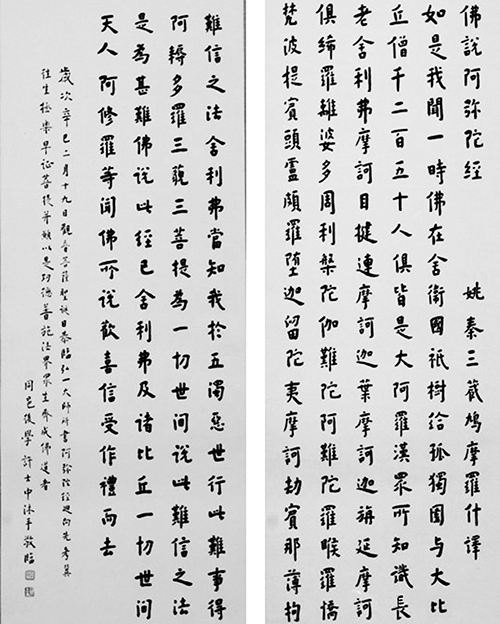 佛說阿弥陀経 姚秦三藏鳩摩羅什譯
如是我聞一時佛在舍衛國祇樹給孤獨園与大比
丘僧千二百五十人俱皆是大阿羅漢眾所知識長
老舍利弗摩訶目揵連摩訶迦葉摩訶迦旃延摩訶
俱絺羅離婆多周利槃陀伽難陀阿難陀羅睺羅憍
梵波提賓頭盧頗羅堕迦留陀夷摩訶劫賓那薄拘
難信之法舍利弗當知我於五濁惡世行此難事得
阿耨多羅三藐三菩提為一切世间說此難信之法
是為甚難佛說此経已舍利弗及諸比丘一切世间
天人阿修羅等聞佛所說歡喜信受作禮而去
歲次辛巳二月十九日觀音菩薩聖誕日恭臨弘一大師所書阿弥陀経迴向先考冀
往生極樂早证菩提并願以是功德普施法界眾生齊成佛道者
同邑後學許士中沐手敬臨